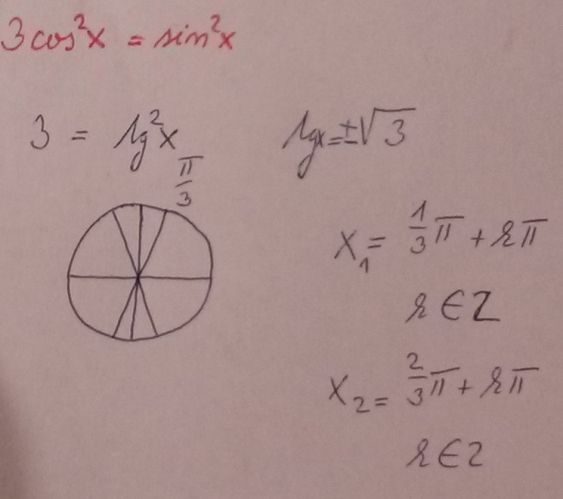 3cos²x = sin²x
3 = tg²x
tgx = ±√3
π/3
x₁ = 1/3 π + kπ
k ∈ Z
x₂ = 2/3 π + kπ
k ∈ Z